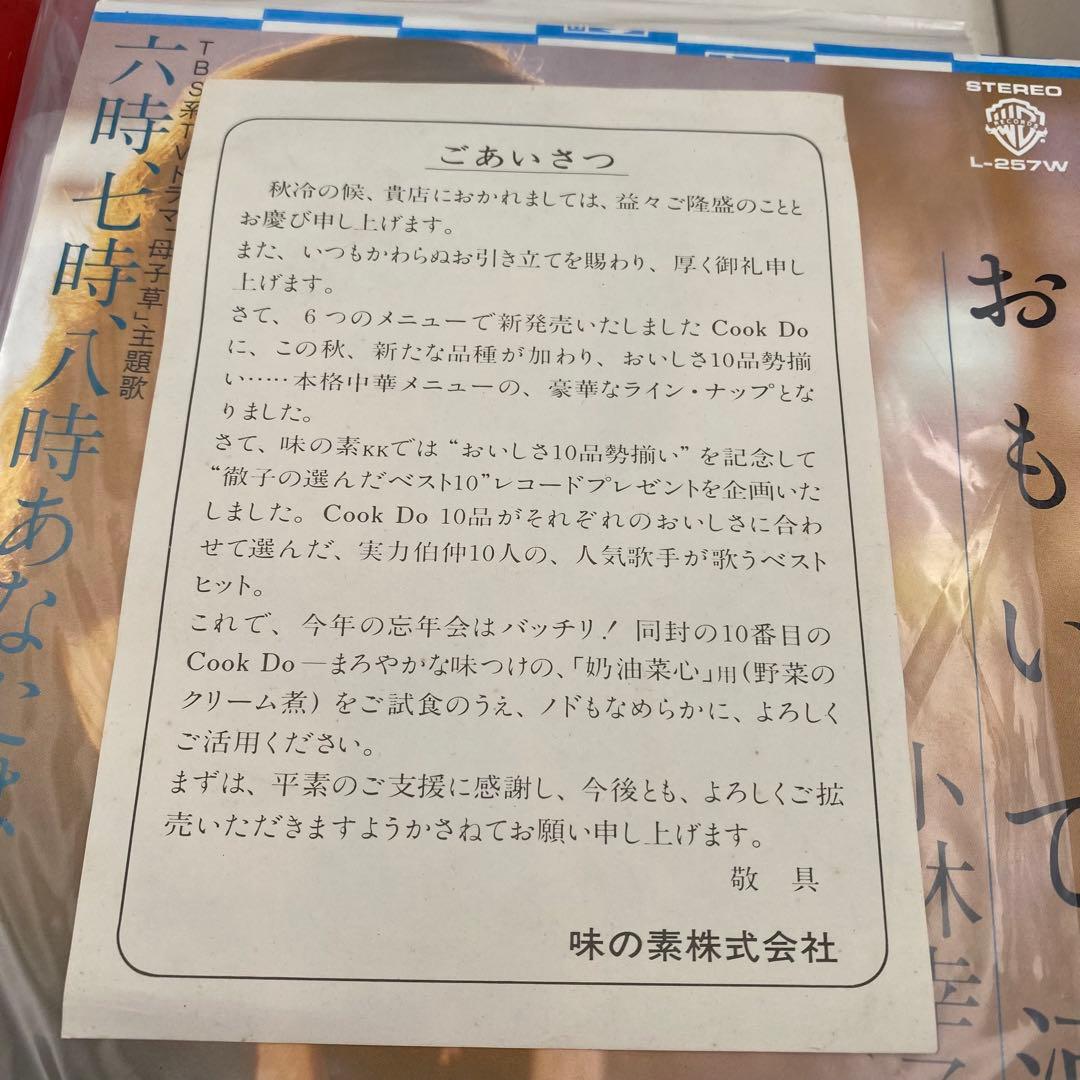 ごあいさつ
秋冷の候、貴店におかれましては、益々ご隆盛のことと
お慶び申し上げます。
また、いつもかわらぬお引き立てを賜わり、厚く御礼申し
上げます。
さて、6つのメニューで新発売いたしました Cook Do
に、この秋、新たな品種が加わり、おいしさ10品勢揃
い……本格中華メニューの、豪華なライン・ナップとな
りました。
さて、味の素KKでは“おいしさ10品勢揃い”を記念して
“徹子の選んだベスト10”レコードプレゼントを企画いた
しました。Cook Do 10品がそれぞれのおいしさに合わ
せて選んだ、実力伯仲10人の、人気歌手が歌うベスト
ヒット。
これで、今年の忘年会はバッチリ！同封の10番目の
Cook Do—まろやかな味つけの、「奶油菜心」用(野菜の
クリーム煮)をご試食のうえ、ノドもなめらかに、よろしく
ご活用ください。
まずは、平素のご支援に感謝し、今後とも、よろしくご拡
売いただきますようかさねてお願い申し上げます。
敬具
味の素株式会社
STEREO
RECORDS
L-257W
おもいで
小林幸
TBS系TVドラマ「母子草」主題歌
六時、七時、八時あな